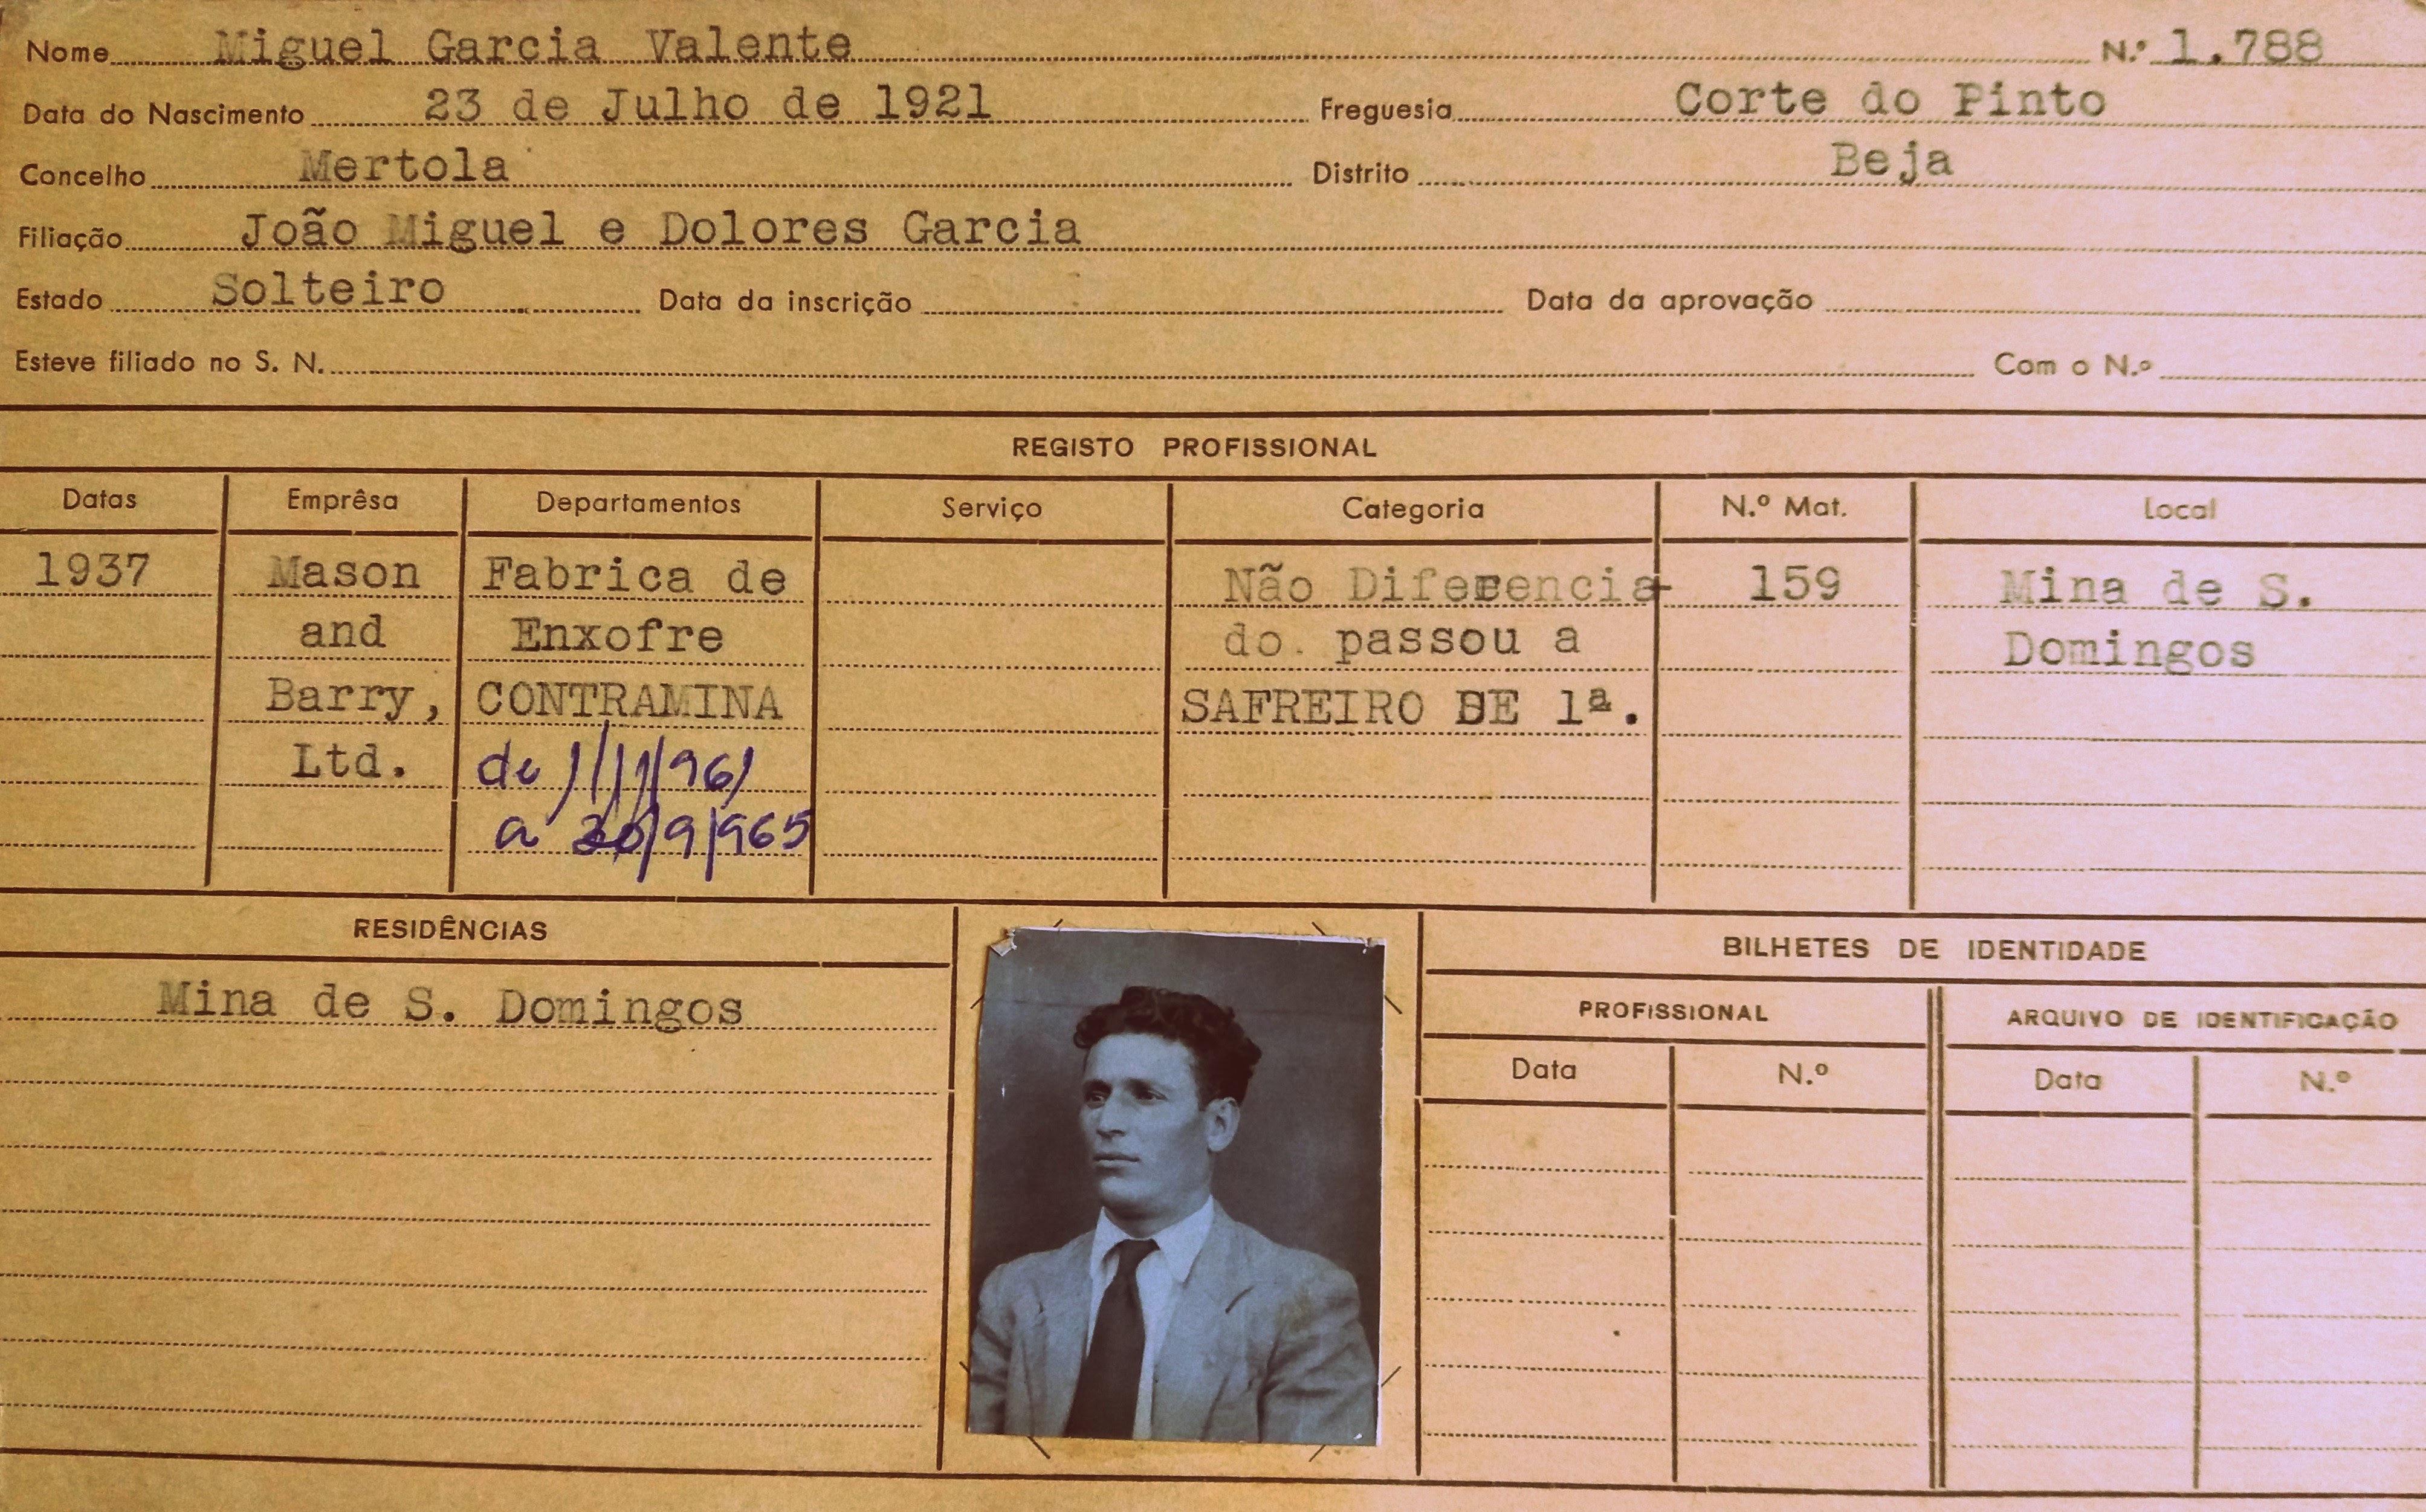 Nome Miguel Garcia Valente N.º 1.788
Data do Nascimento 23 de Julho de 1921 Freguesia Corte do Pinto
Concelho Mertola Distrito Beja
Filiação João Miguel e Dolores Garcia
Estado Solteiro Data da inscrição Data da aprovação
Esteve filiado no S. N. Com o N.º
REGISTO PROFISSIONAL
Datas Emprêsa Departamentos Serviço Categoria N.º Mat. Local
1937 Mason Fabrica de Não Diferencia- 159 Mina de S.
and Enxofre do. passou a Domingos
Barry, CONTRAMINA SAFREIRO DE 1ª.
Ltd. de 1/11/961
a 30/9/965
RESIDÊNCIAS
Mina de S. Domingos
BILHETES DE IDENTIDADE
PROFISSIONAL ARQUIVO DE IDENTIFICAÇÃO
Data N.º Data N.º